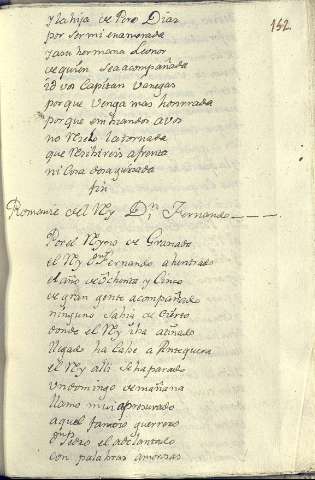 152.
y la hija de Pero Diaz
por ser mi enamorada
y a su hermana Leonor
de quien sea acompañada
id vos Capitan Vanegas
porque venga mas honrrada
porque embiandos a vos
no la tornada
que reciviréis afrenta
ni cosa desaguisada
fin
Romance del Rey Dn Fernando
Por el Reyno de Granada
el Rey Dn Fernando a hentrado
el año de ochenta y Cinco
de gran gente acompañado
ninguno sabia de cierto
donde el Rey iba atinado
llegado ha Cabe a Antequera
el Rey alli se ha parado
un domingo de mañana
llamo muy apresurado
a aquel famoso guerrero
Dn Pedro el adelantado
con palabras amorosas